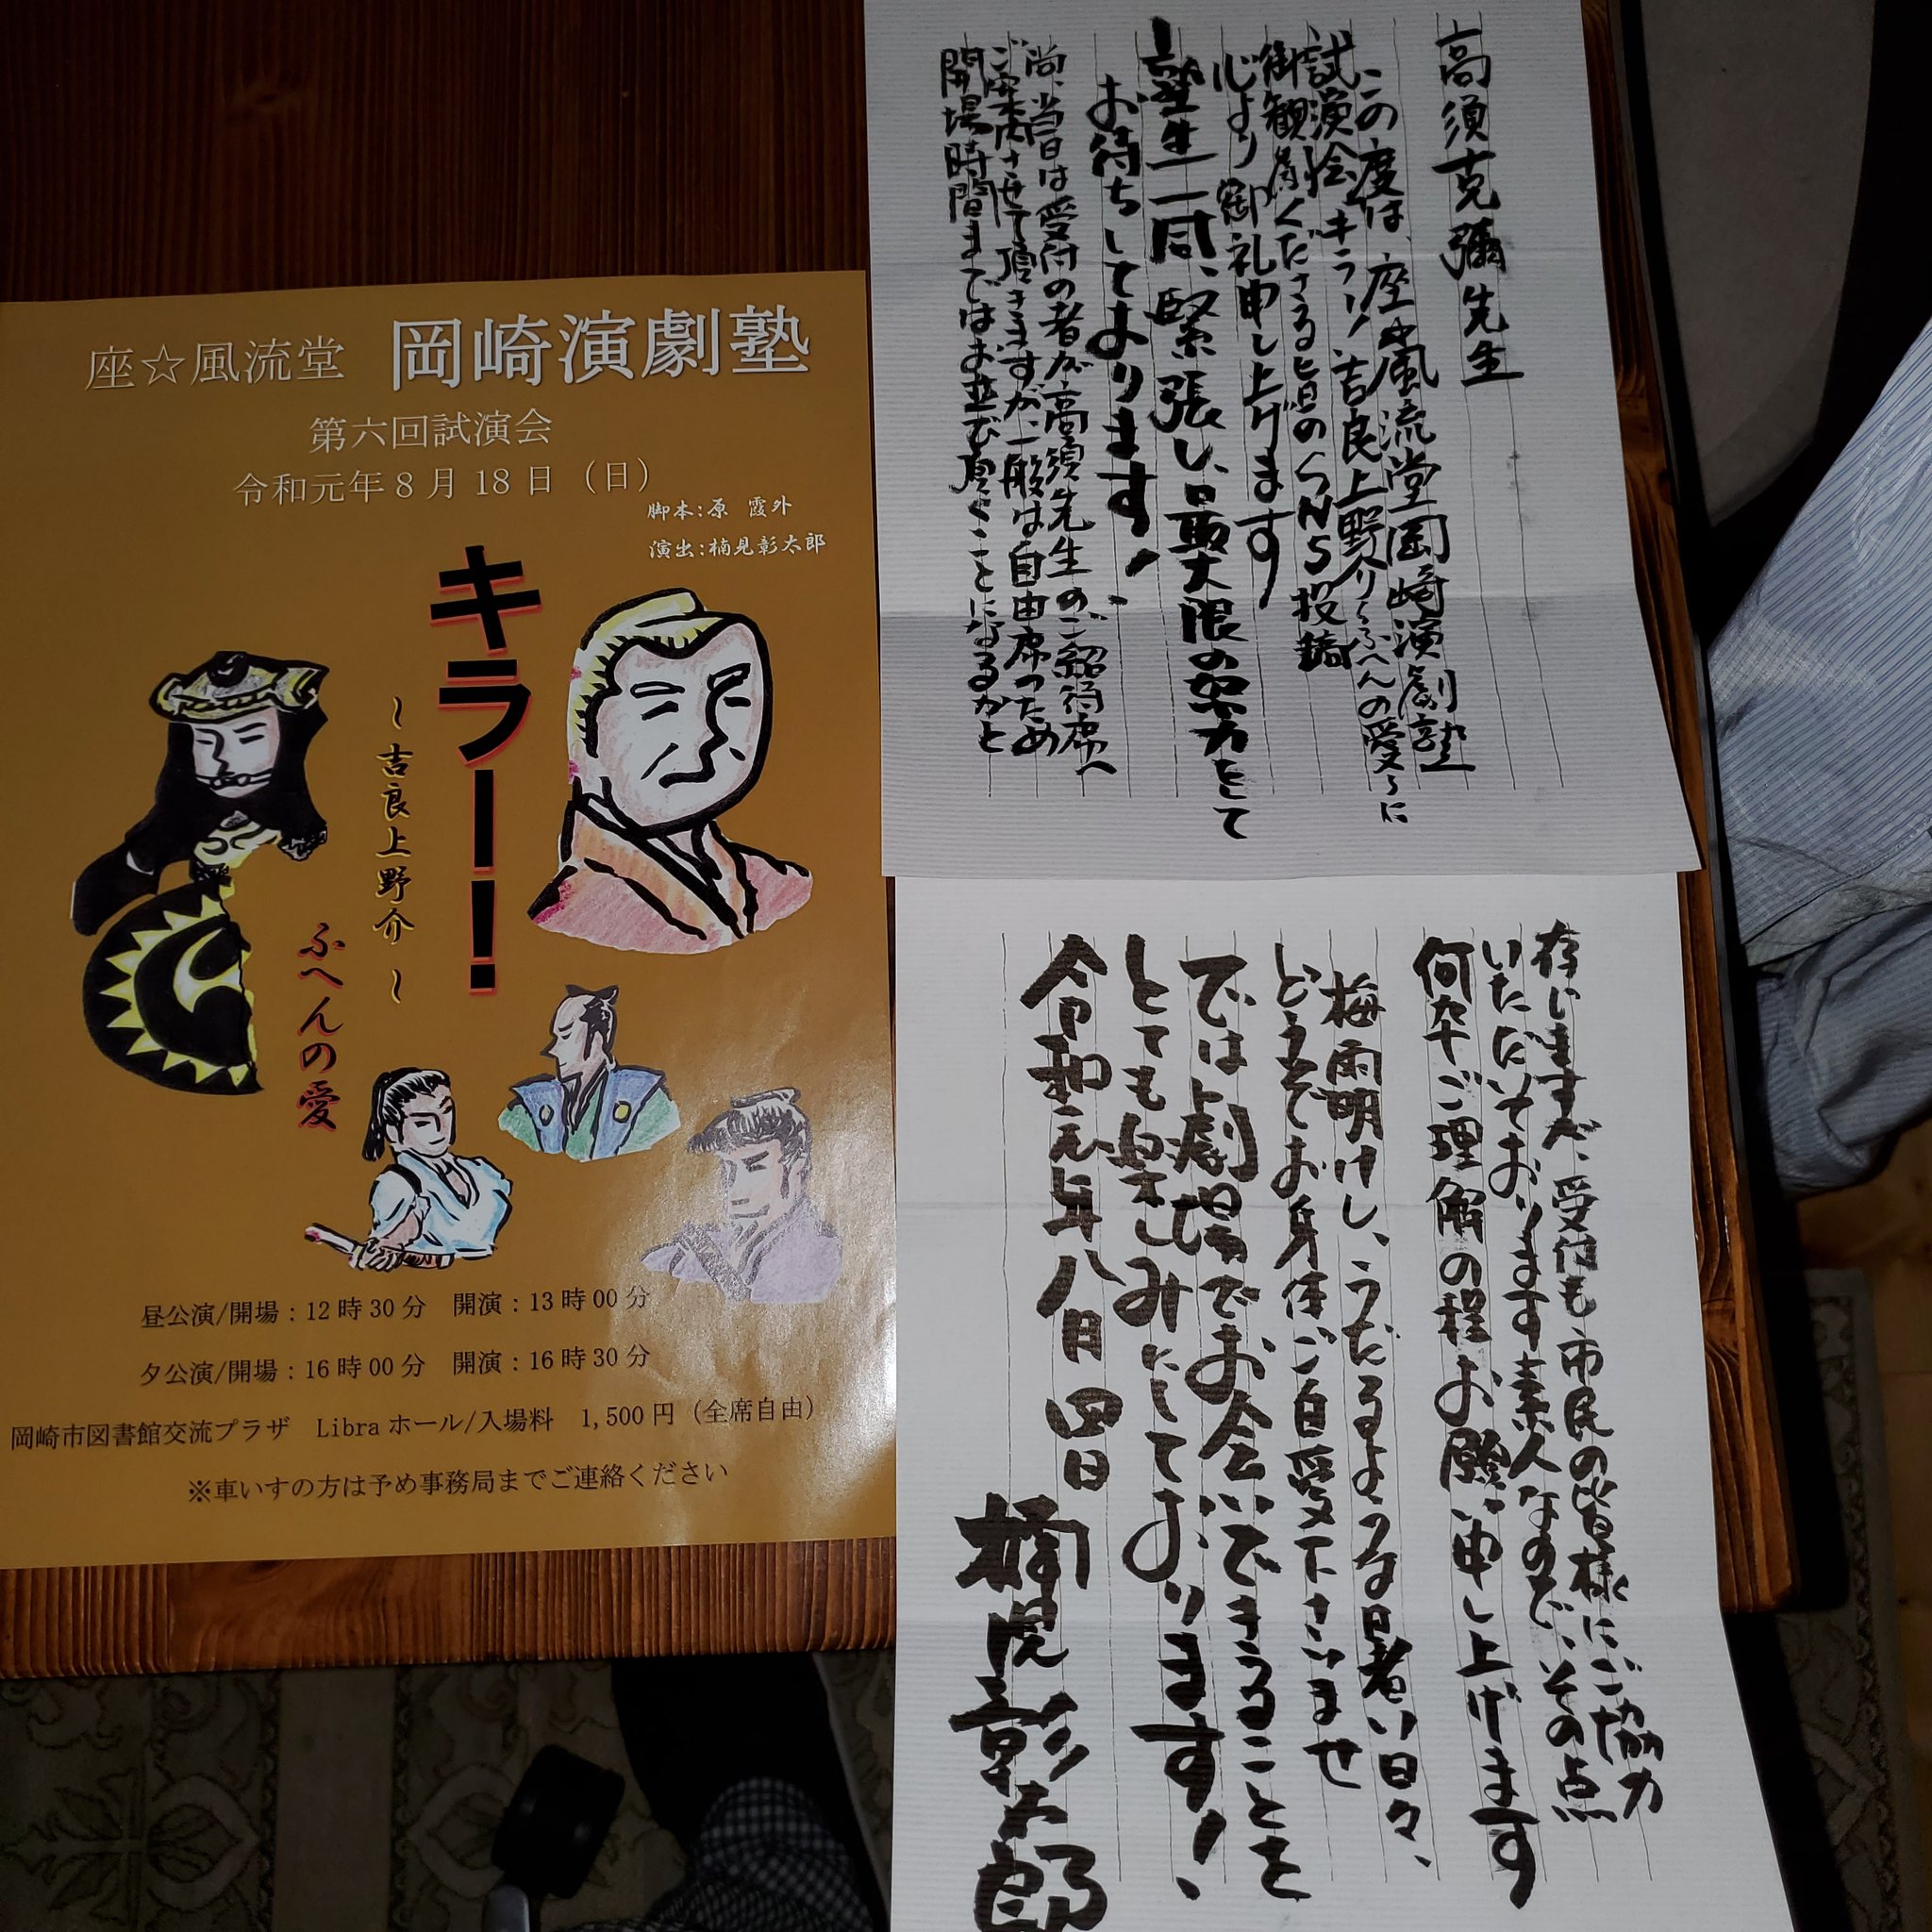 座☆風流堂 岡崎演劇塾
第六回試演会
令和元年8月18日（日）
脚本:原 霞外
演出:楠見彰太郎
キラー！
～吉良上野介～
ふへんの愛
昼公演/開場：12時30分 開演：13時00分
夕公演/開場：16時00分 開演：16時30分
岡崎市図書館交流プラザ Libraホール/入場料 1,500円（全席自由）
※車いすの方は予め事務局までご連絡ください
高須克彌先生
この度は、座☆風流堂岡崎演劇塾
試演会 キラー！吉良上野介〜ふへんの愛〜に
御観劇くださる旨のSNS投稿
心より御礼申し上げます
塾生一同、緊張し、最大限の努力をして
お待ちしております！
尚、当日は受付の者が高須先生のご招待席へ
ご案内させて頂きますが、一般は自由席のため
開場時間まではお並び頂くことになるかと
存じますが、受付も市民の皆様にご協力
いただいております素人なので、その点
何卒ご理解の程お願い申し上げます
梅雨明けし、うだるような暑い日々、
どうぞお身体ご自愛下さいませ
では劇場でお会いできることを
とても楽しみにしております！
令和元年八月四日
楠見彰太郎